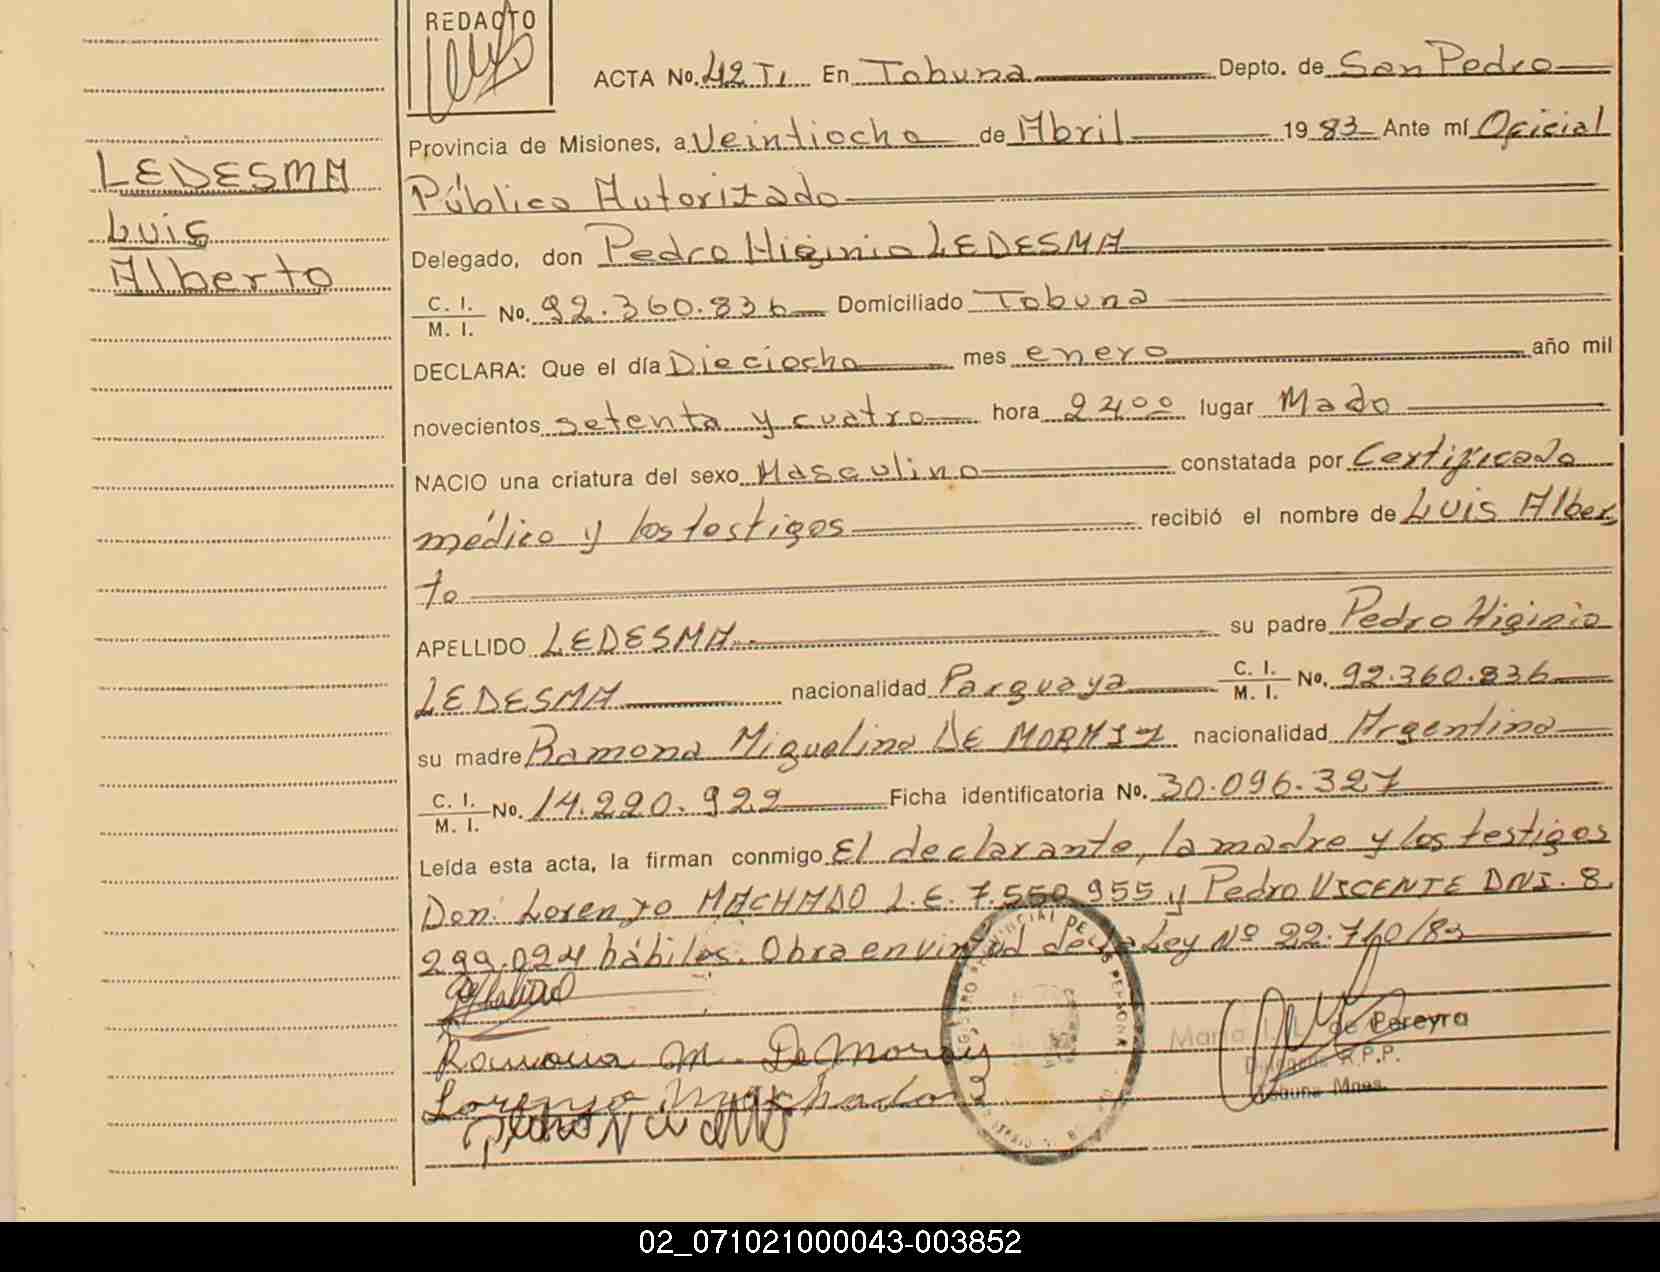 REDACTO
ACTA No. 42 TI En Tobuna Depto. de San Pedro
Provincia de Misiones, a Veintiocho de Abril 1983 Ante mí Oficial
Público Autorizado
LEDESMA
Luis
Alberto
Delegado, don Pedro Higinio LEDESMA
C. I. / M. I. No. 92.360.836 Domiciliado Tobuna
DECLARA: Que el día Dieciocho mes enero año mil
novecientos setenta y cuatro hora 2400 lugar Mado
NACIO una criatura del sexo Masculino constatada por Certificado
médico y los testigos recibió el nombre de Luis Alber
to
APELLIDO LEDESMA su padre Pedro Higinio
LEDESMA nacionalidad Parguaya C. I. / M. I. No. 92.360.836
su madre Ramona Miguelina DE nacionalidad Argentina
C. I. / M. I. No. 14.220.922 Ficha identificatoria No. 30.096.327
Leída esta acta, la firman conmigo El declarante, la madre y los testigos
Don: Lorenzo MACHADO L.E. 7.550.955 y Pedro VICENTE DNI. 8.
299.024 hábiles. Obra en virtud de la Ley Nº 22.710/83
Ramona M. De Moray
Lorenzo Machado
de Pereyra
R.P.P.
Tobuna Mnes.
02_071021000043-003852